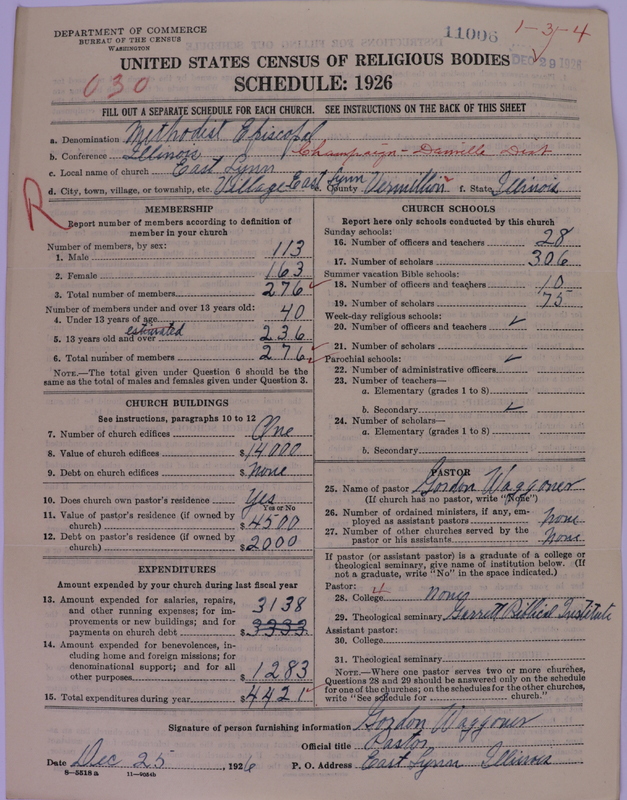 DEPARTMENT OF COMMERCE
BUREAU OF THE CENSUS
WASHINGTON
11006
1-3-4
DEC 29 1926
030
UNITED STATES CENSUS OF RELIGIOUS BODIES
SCHEDULE: 1926
FILL OUT A SEPARATE SCHEDULE FOR EACH CHURCH. SEE INSTRUCTIONS ON THE BACK OF THIS SHEET
a. Denomination Methodist Episcopal
b. Conference Illinois Champaign - Danville Dist
c. Local name of church East Lynn
d. City, town, village, or township, etc. Village East Lynn e. County Vermillion f. State Illinois
R
MEMBERSHIP
Report number of members according to definition of
member in your church
Number of members, by sex:
1. Male 113
2. Female 163
3. Total number of members 276
Number of members under and over 13 years old:
4. Under 13 years of age 40
estimated
5. 13 years old and over 236
6. Total number of members 276
NOTE.—The total given under Question 6 should be
same as the total of males and females given under Question 3.
CHURCH BUILDINGS
See instructions, paragraphs 10 to 12
7. Number of church edifices One
8. Value of church edifices $14000
9. Debt on church edifices $none
10. Does church own pastor's residence yes
Yes or No
11. Value of pastor's residence (if owned by
church) $4500
12. Debt on pastor's residence (if owned by
church) $2000
EXPENDITURES
Amount expended by your church during last fiscal year
13. Amount expended for salaries, repairs,
and other running expenses; for im-
provements or new buildings; and for
payments on church debt 3138
$3333
14. Amount expended for benevolences, in-
cluding home and foreign missions; for
denominational support; and for all
other purposes $1283
15. Total expenditures during year $4421
CHURCH SCHOOLS
Report here only schools conducted by this church
Sunday schools:
16. Number of officers and teachers 28
17. Number of scholars 306
Summer vacation Bible schools:
18. Number of officers and teachers 10
19. Number of scholars 75
Week-day religious schools:
20. Number of officers and teachers
21. Number of scholars
Parochial schools:
22. Number of administrative officers
23. Number of teachers—
a. Elementary (grades 1 to 8)
b. Secondary
24. Number of scholars—
a. Elementary (grades 1 to 8)
b. Secondary
PASTOR
25. Name of pastor Gordon Waggoner
(If church has no pastor, write "None")
26. Number of ordained ministers, if any, em-
ployed as assistant pastors none
27. Number of other churches served by the
pastor or his assistants none
If pastor (or assistant pastor) is a graduate of a college or
theological seminary, give name of institution below. (If
not a graduate, write "No" in the space indicated.)
Pastor:
28. College 4 none
29. Theological seminary Garrett Biblical Institute
Assistant pastor:
30. College
31. Theological seminary
NOTE.—Where one pastor serves two or more churches,
Questions 28 and 29 should be answered only on the schedule
for one of the churches; on the schedules for the other churches,
write "See schedule for church."
Signature of person furnishing information Gordon Waggoner
Official title Pastor
Date Dec 25, 1926 P. O. Address East Lynn Illinois
8-5518a 11-9034b